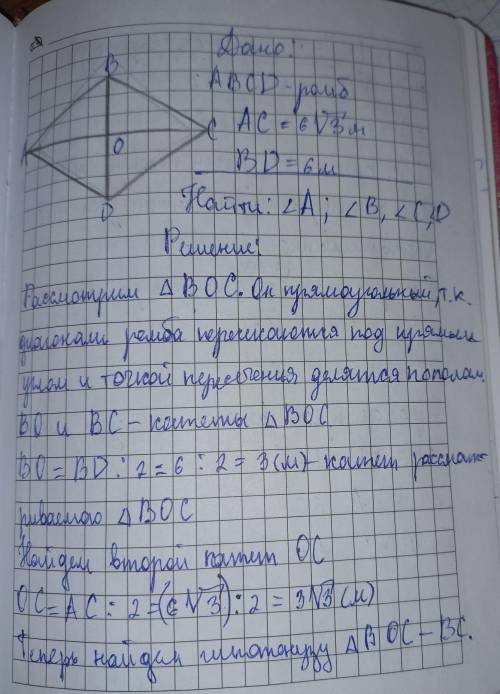 B
A
O
C
D
Дано:
ABCD - ромб
AC = 6√3 м
BD = 6 м
Найти: ∠A; ∠B, ∠C, D
Решение:
Рассмотрим △BOC. Он прямоугольный, т.к.
диагонали ромба пересекаются под прямым
углом и точкой пересечения делятся пополам.
BO и BC - катеты △BOC
BO = BD : 2 = 6 : 2 = 3 (м) - катет рассмат-
риваемого △BOC
Найдем второй катет OC
OC = AC : 2 = (6√3) : 2 = 3√3 (м)
Теперь найдем гипотенузу △BOC - BC.